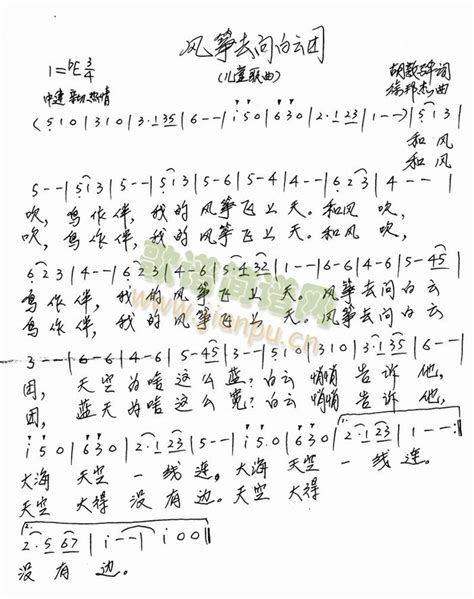 风筝去问白云团
(儿童歌曲)
1=bE 3/4
胡敦骅词
徐邦杰曲
中速 亲切 热情
(5 1 0 | 3 1 0 | 3·1 35 | 6-- | i 5 0 | 6 3 0 | 2·1 23 | 1--) | 5 1 3 |
和风
和风
5-- | 5 1 3 | 5-- | 5 1 3 | 5-6 | 5-4 | 4-- | 6 2 3 | 4-- |
吹，鸟作伴，我的风筝飞上天。和风吹，
吹，鸟作伴，我的风筝飞上天。和风吹，
6 2 3 | 4-- | 6 2 3 | 4-6 | 5·4 32 | 1-- | 6-6 | 4-6 | 5-45 |
鸟作伴，我的风筝飞上天。风筝去问白云
鸟作伴，我的风筝飞上天。风筝去问白云
3-- | 6-6 | 4-6 | 5-45 | 3-- | 5 1 0 | 3 1 0 | 3·1 35 | 6-- |
团，天空为啥这么蓝？白云悄悄告诉他，
团，蓝天为啥这么宽？白云悄悄告诉他，
i 5 0 | 6 3 0 | 2·1 23 | 5-- | i 5 0 | 6 3 0 | 2·1 23 | 1-- :|
大海天空一线连。大海天空一线连。
天空大得没有边。天空大得
2.
2·5 67 | i-- | i 0 0 ||
没有边。
歌谱简谱网
www.jianpu.cn